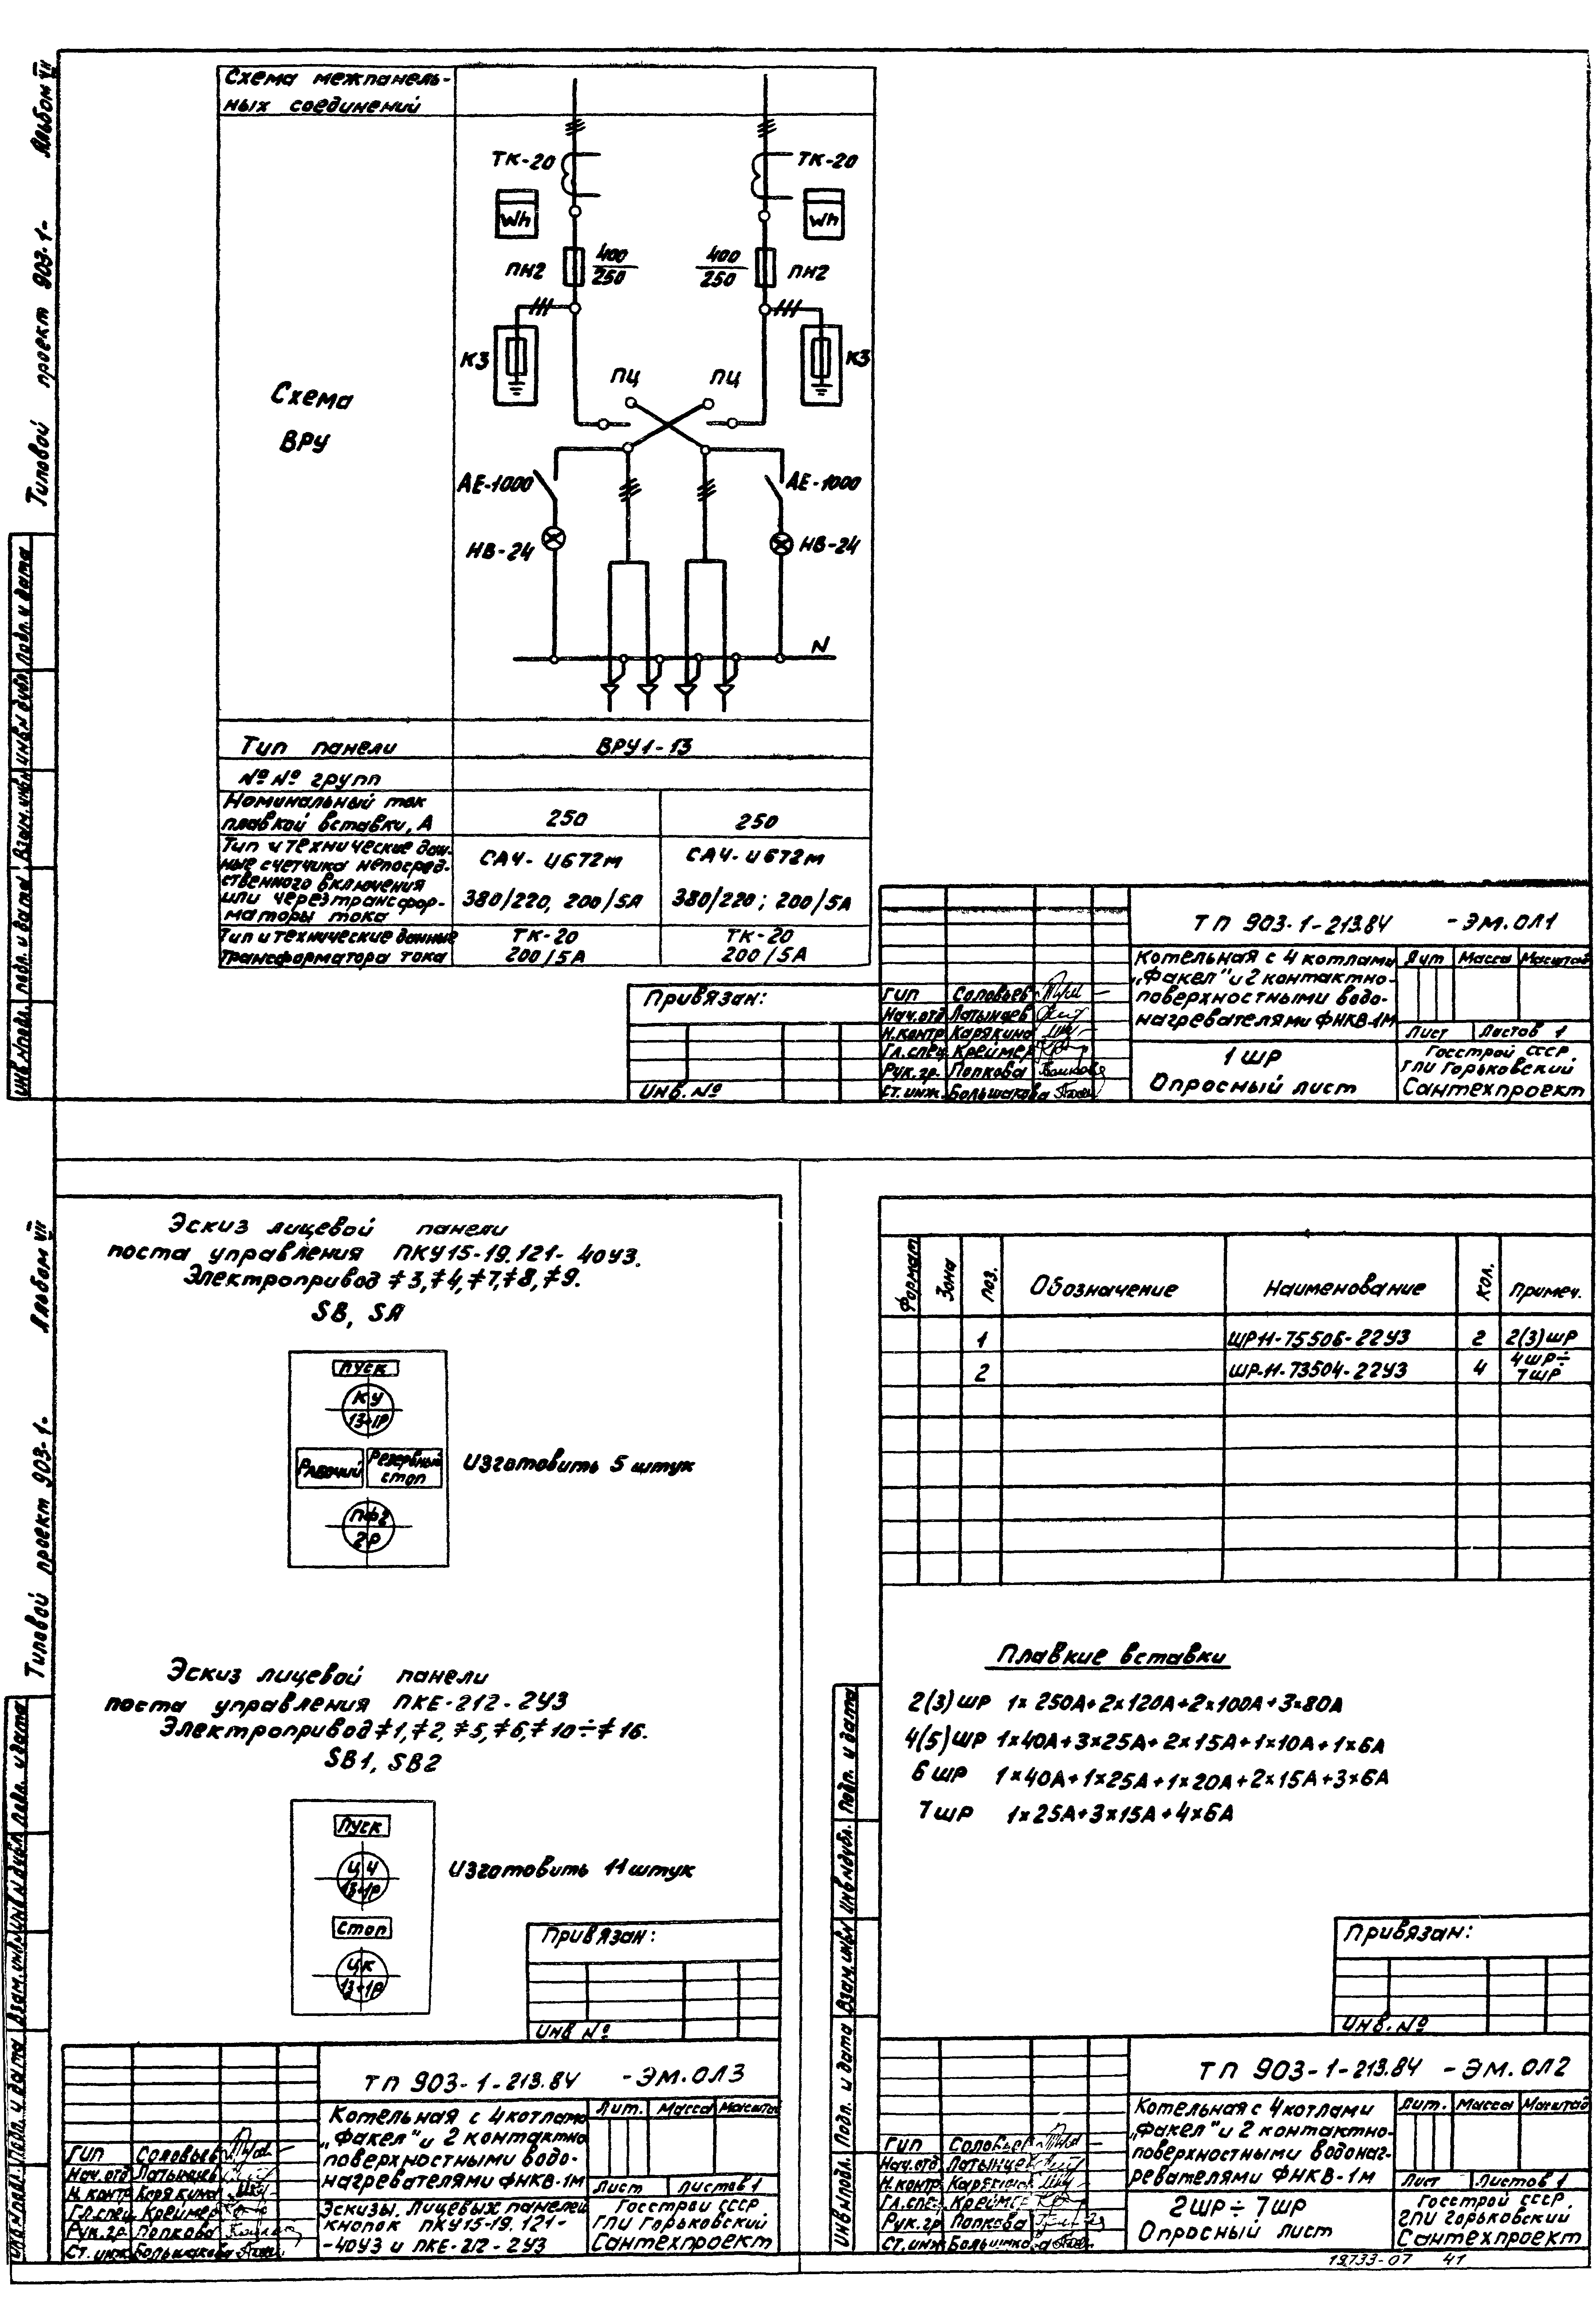 Альбом VII
Типовой проект 903-1-
Схема межпанель-
ных соединений
ТК-20
ТК-20
Wh
Wh
ПН2
400
250
400
250
ПН2
КЗ
КЗ
ПЦ
ПЦ
Схема
ВРУ
АЕ-1000
АЕ-1000
НВ-24
НВ-24
N
Тип панели
ВРУ1-13
№№ групп
Номинальный ток
плавкой вставки, А
250
250
Тип и технические дан-
ные счетчика непосред-
ственного включения
или через трансфор-
маторы тока
САЧ-И672м
САЧ-И672м
380/220, 200/5А
380/220; 200/5А
Тип и технические данные
трансформатора тока
ТК-20
200/5А
ТК-20
200/5А
Привязан:
Инв. №
ТП 903-1-213.84 -ЭМ.ОЛ1
Котельная с 4 котлами
„Факел" и 2 контактно-
поверхностными водо-
нагревателями ФНКВ-1М
Лит Масса Масштаб
Лист Листов 1
ГИП Соловьев
Нач.отд Латынцев
Н.контр Карякина
Гл.спец. Креймер
Рук.гр. Попкова
Ст.инж. Большакова
1ШР
Опросный лист
Госстрой СССР
ГПИ Горьковский
Сантехпроект
Инв.№подл. Подп. и дата Взам.инв.№ Инв.№ дубл. Подп. и дата
Альбом VII
Типовой проект 903-1-
Эскиз лицевой панели
поста управления ПКУ15-19.121-40У3.
Электропривод ≠3,≠4,≠7,≠8,≠9.
SB, SA
Пуск
КУ
1З+1Р
Рабочий
Резервный
стоп
ПФ2
2Р
Изготовить 5 штук
Эскиз лицевой панели
поста управления ПКЕ-212-2У3
Электропривод ≠1,≠2,≠5,≠6,≠10÷≠16.
SB1, SB2
Пуск
ЦЧ
1З+1Р
Стоп
ЦК
1З+1Р
Изготовить 11 штук
Привязан:
Инв №
ТП 903-1-213.84 -ЭМ.ОЛ3
Котельная с 4 котлами
„Факел" и 2 контактно
поверхностными водо-
нагревателями ФНКВ-1М
Лит. Масса Масштаб
Лист Листов 1
ГИП Соловьев
Нач.отд Латынцев
Н.контр Карякина
Гл.спец. Креймер
Рук.гр. Попкова
Ст.инж Большакова
Эскизы. Лицевых панелей
кнопок ПКУ15-19.121-
-40У3 и ПКЕ-212-2У3
Госстрой СССР
ГПИ Горьковский
Сантехпроект
Инв.№подл. Подп. и дата Взам.инв.№ Инв.№ дубл. Подп. и дата
Формат Зона Поз. Обозначение Наименование Кол. Примеч.
1 ШР11-73506-22У3 2 2(3)ШР
2 ШР-11-73504-22У3 4 4ШР÷
7ШР
Плавкие вставки
2(3)ШР 1×250А+2×120А+2×100А+3×80А
4(5)ШР 1×40А+3×25А+2×15А+1×10А+1×6А
6ШР 1×40А+1×25А+1×20А+2×15А+3×6А
7ШР 1×25А+3×15А+4×6А
Привязан:
Инв. №
ТП 903-1-213.84 -ЭМ.ОЛ2
Котельная с 4 котлами
„Факел" и 2 контактно-
поверхностными водонаг-
ревателями ФНКВ-1М
Лит. Масса Масштаб
Лист Листов 1
ГИП Соловьев
Нач.отд Латынцев
Н.контр Карякина
Гл.спец. Креймер
Рук.гр Попкова
Ст.инж Большакова
2ШР÷7ШР
Опросный лист
Госстрой СССР
ГПИ Горьковский
Сантехпроект
Инв.№подл. Подп. и дата Взам.инв.№ Инв.№дубл. Подп. и дата
19733-07 41